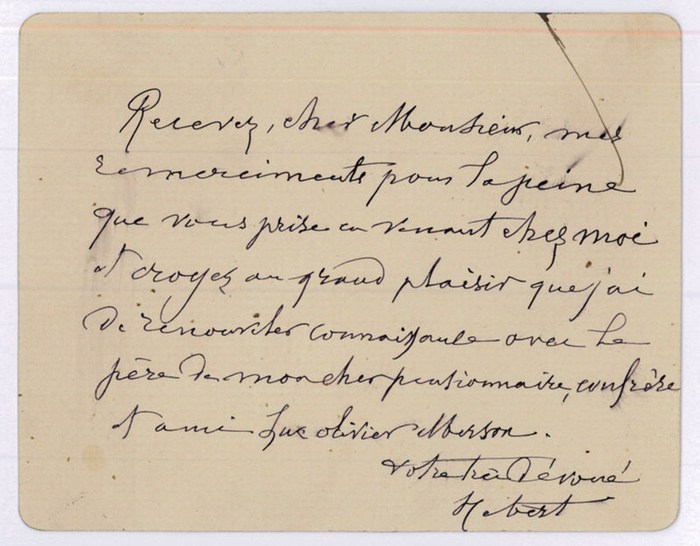 Recevez, cher Monsieur, mes
remerciments pour la peine
que vous prise en venant chez moi
et croyez au grand plaisir que j'ai
de renouveler connaissance avec le
père de mon cher pensionnaire, confrère
et ami Luc Olivier Merson.
Votre très dévoué
Hébert